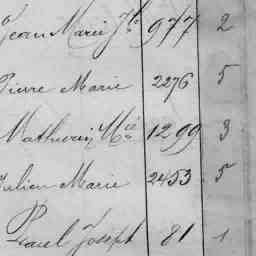 Jean Marie Jh 977 2
Pierre Marie 2276 5
Mathurin Mie 1299 3
Julien Marie 2453 5
Paul Joseph 81 1